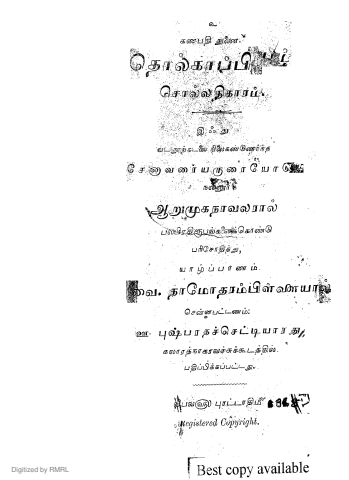 உ
கணபதி துணை.
தொல்காப்பியம்
சொல்லதிகாரம்.
இஃது
வடநூற்கடலை நிலைகண்டுணர்ந்த
சேனாவரையருரையோடும்
நல்லூர்
ஆறுமுகநாவலரால்
பலபிரதிரூபங்களைக்கொண்டு
பரிசோதித்து,
யாழ்ப்பாணம்
வை. தாமோதரம்பிள்ளையால்
சென்னபட்டணம்:
ஊ. புஷ்பரதச்செட்டியாரது,
கலாரத்நாகரவச்சுக்கூடத்தில்
பதிப்பிக்கப்பட்டது.
புரட்டாதிமீ
Registered Copyright.
Digitized by RMRL
Best copy available